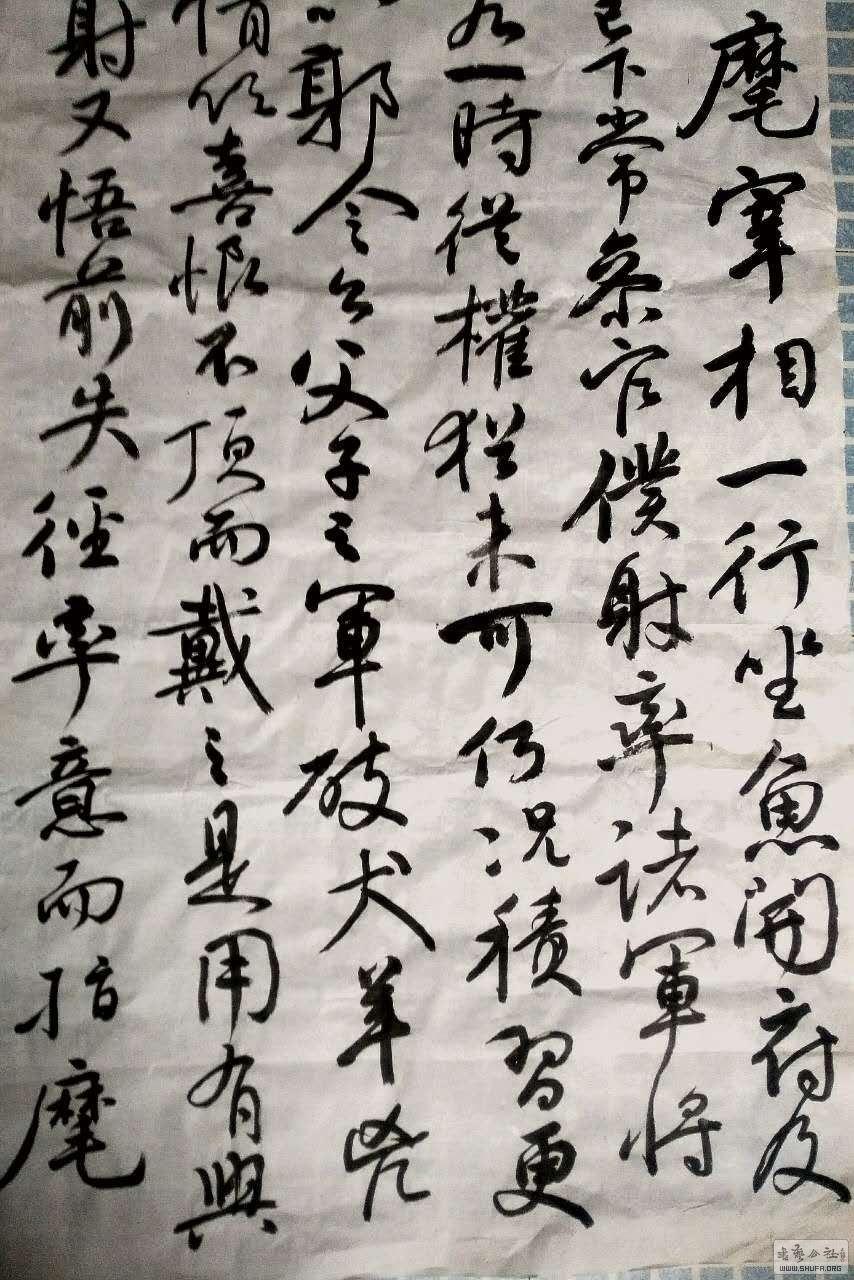 麾宰相一行坐魚開府及
已下常參官僕射率諸軍將
為一時從權猶未可何況積習更
郭令公父子之軍破犬羊兇
情欣喜恨不頂而戴之是用有興
射又悟前失徑率意而指麾
书艺公社
WWW.SHUFA.ORG